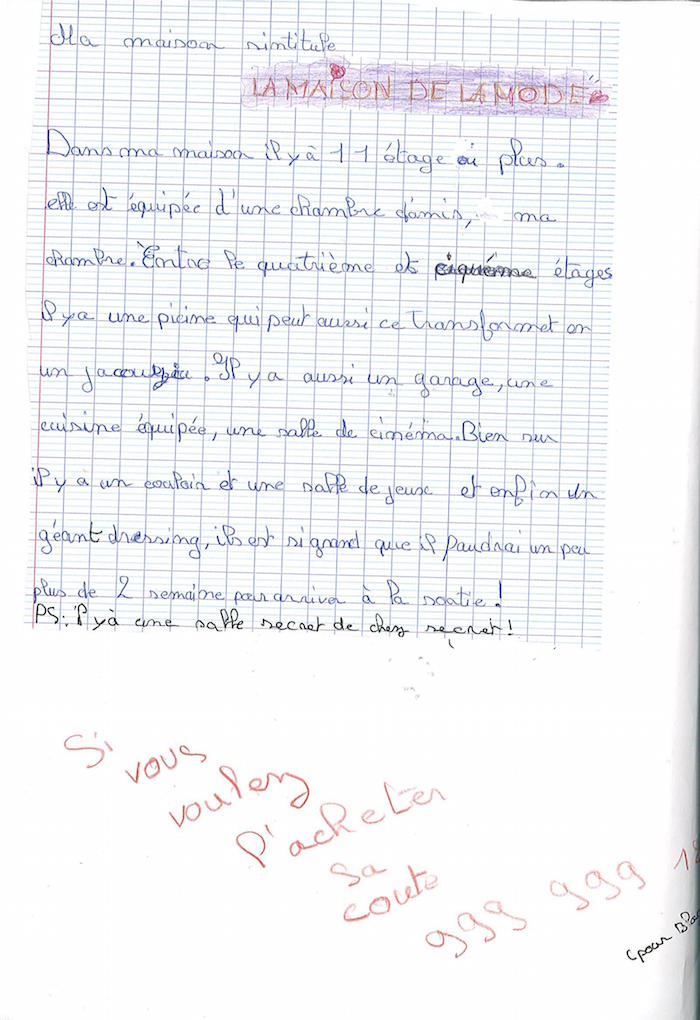 Ma maison sintitule
LA MAISON DE LA MODE
Dans ma maison il y à 11 étage ou plus.
elle est équipée d'une chambre d'amis, ma
chambre. Entre le quatrième et ciquiéme étages
il y a une picine qui peut aussi ce transformet en
un jacuzzie. Il y a aussi un garage, une
cuisine équipée, une salle de cinéma. Bien sur
il y a un couloir et une salle de jeux et enfin un
géant dressing, ils est si grand que il faudrai un peu
plus de 2 semaine pour arriver à la sortie!
PS: il y à une salle secret de chez secret!
Si
vous
voulez
l'acheter
sa
coute
999 999
(pour